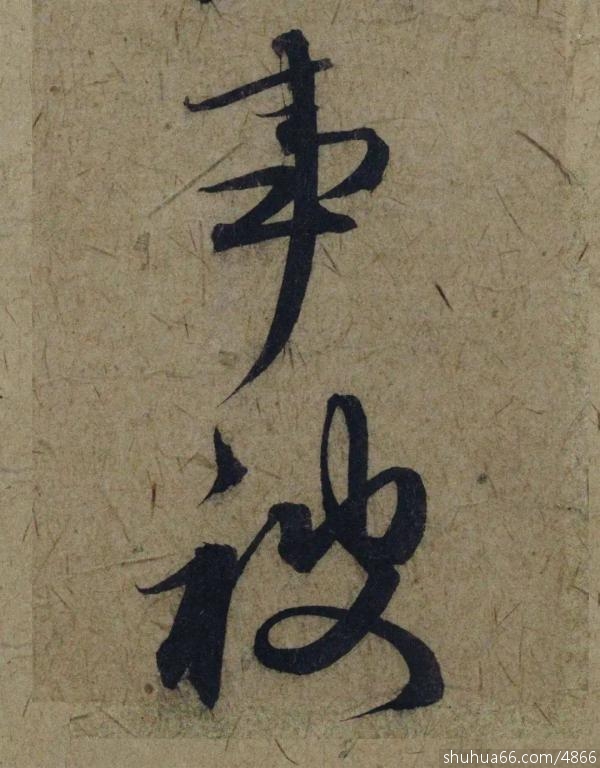 事被
shuhua66.com/4866